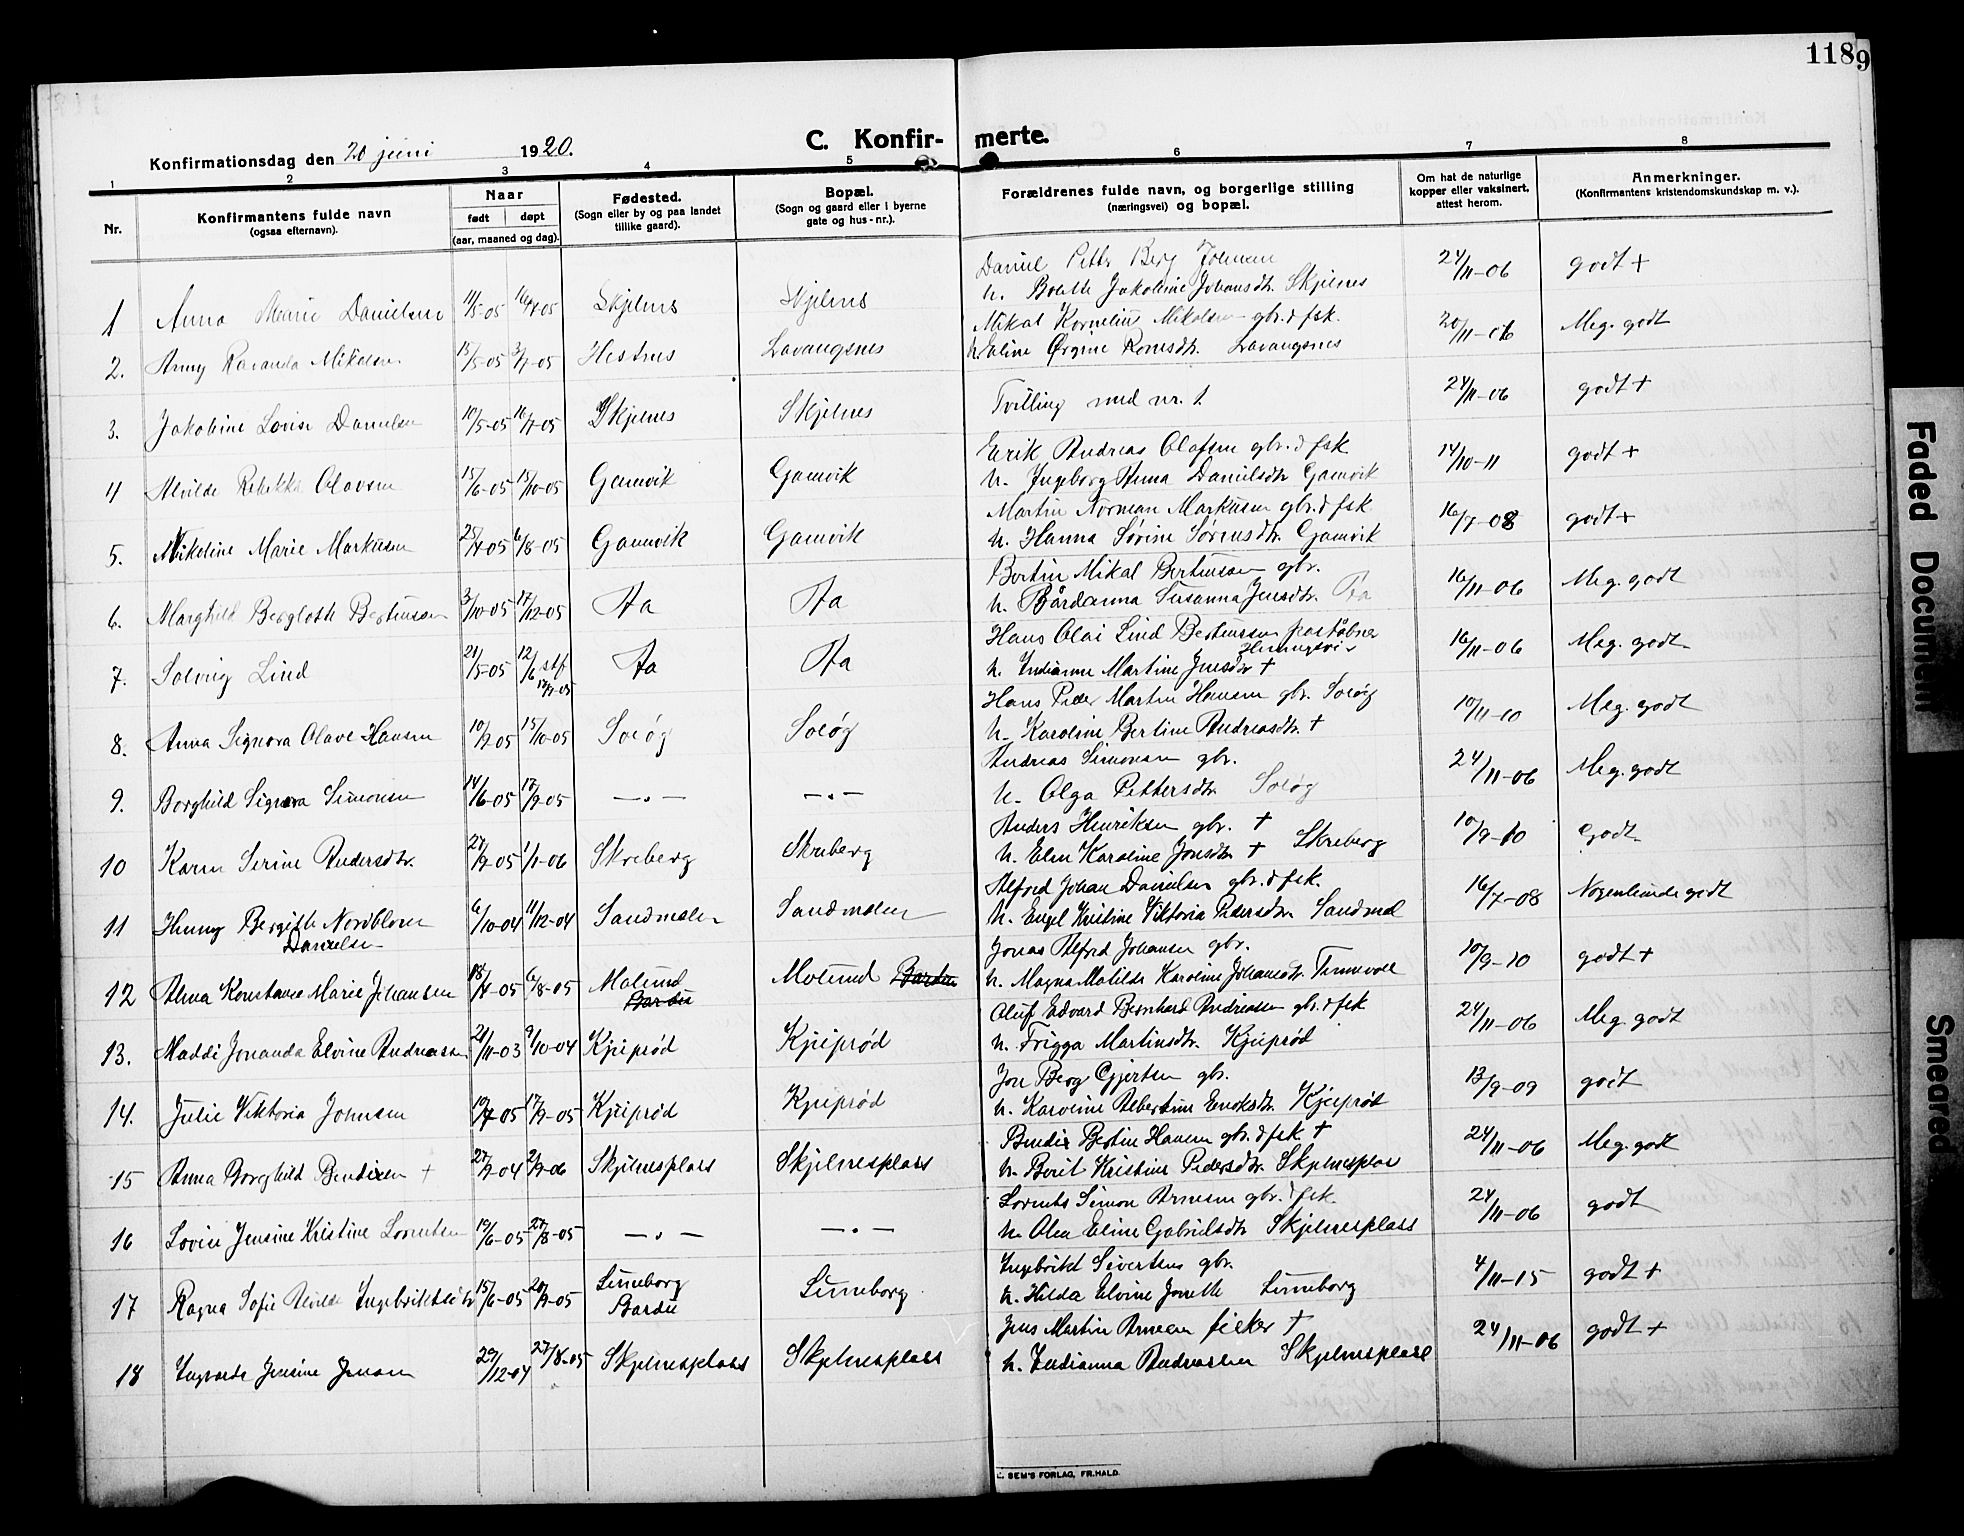 118
9
C. Konfir- merte.
Konfirmationsdag den 20 juni 1920.
1 2 3 4 5 6 7 8
Nr.
Konfirmantens fulde navn
(ogsaa efternavn).
Naar
født døpt
(aar, maaned og dag).
Fødested.
(Sogn eller by og paa landet
tillike gaard).
Bopæl.
(Sogn og gaard eller i byerne
gate og hus-nr.).
Forældrenes fulde navn, og borgerlige stilling
(næringsvei) og bopæl.
Om hat de naturlige
kopper eller vaksinert,
attest herom.
Anmerkninger.
(Konfirmantens kristendomskundskap m. v.).
Daniel Petter Berg Johnsen
1 Anna Marie Danielsen 11/5-05 16/7-05 Skjelnes Skjelnes h. Jakobine Johansdtr. Skjelnes 24/11-06 godt +
Mikal Kornelius Mikalsen gbr. & fsk.
2. Anny Ravanda Mikalsen 15/5-05 3/7-05 Hestnes Lavangsnes h. Eline Ørgine Lavangsnes 20/11-06 Meg. godt
3. Jakobine Lovise Danielsen 10/5-05 16/7-05 Skjelnes Skjelnes Tvilling med nr. 1. 24/11-06 godt +
Erik Andreas Olafsen gbr. & fsk
4 Alvilde Rebekka Olavsen 15/6-05 15/10-05 Gamvik Gamvik h. Ingeborg Anna Danielsdtr Gamvik 14/10-11 godt +
Martin Norman Markusen gbr. & fsk.
5. Nikoline Marie Markusen 25/4-05 6/8-05 Gamvik Gamvik h. Hanna Sørine Sørensdtr. Gamvik 16/7-08 godt +
Bertin Mikal Bertinssen gbr.
6. Marghild Bergloth Bertinssen 3/10-05 17/12-05 Aa Aa h. Bårdanna Susanna Jensdtr. Aa 16/11-06 Meg. godt
Hans Olai Lind Bertinssen postabner
7. Solvig Lind 21/5-05 12/6 stf Aa Aa h. Indianna Martine Jensdtr + 16/11-06 Meg. godt
Hans Peder Martin Hansen gbr. Soløg
8. Anna Signora Olave Hansen 10/7-05 15/10-05 Soløg Soløg h. Karoline Bertine Andreasdtr. + 10/11-10 Meg. godt
Andreas Simonsen gbr.
9. Borghild Signora Simonsen 14/6-05 17/9-05 —„— —„— h. Olga Pettersdtr. Soløg 24/11-06 Meg. godt
Anders Henriksen gbr. +
10 Karen Serine Andersdtr. 27/9-05 1/1-06 Skreberg Skreberg h. Elen Karoline Jonsdtr + Skreberg 10/9-10 Godt
Alfred Johan Danielsen gbr. & fsk.
11 Henny Bergitte Nordblom 6/10-04 11/12-04 Sandmelen Sandmelen h. Engel Kristine Viktoria Pedersdtr. Sandmel 16/7-08 Nogenlunde godt
Danielsen
Jonas Alfred Johansen gbr.
12 Alma Konstanse Marie Johansen 18/4-05 6/8-05 Molund Molund Bardu h. Magna Matilde Karoline Johansdtr. Tennevoll 10/9-10 godt +
Bardu
Oluf Edvard Bernhard Andreassen gbr. & fsk
13. Maddi Jonanda Elvine Andreassen 21/11-03 9/10-04 Kjeiprød Kjeiprød h. Frigga Martinsdtr. Kjeiprød 24/11-06 Meg. godt
Jon Berg Gjertsen gbr.
14. Julie Viktoria Johnsen 19/7-05 17/9-05 Kjeiprød Kjeiprød h. Karoline Albertine Eriksdtr. Kjeiprød 13/9-09 godt
Bendix Bertin Hansen gbr. & fsk +
15 Anna Borghild Bendixen + 27/9-04 2/9-06 Skjelnesplass Skjelnesplass h. Berit Kristine Pedersdtr. Skjelnesplas 24/11-06 Meg. godt
Lorents Simon Arnesen gbr. & fsk.
16 Lovise Jensine Kristine Lorentsen 19/6-05 27/8-05 —„— —„— h. Elen Eline Gabrielsdtr Skjelnesplass 24/11-06 godt
Ingebrikt Sivertsen gbr.
17 Ragna Sofie Alvilde Ingebriktsdtr 15/6-05 20/9-05 Liineborg Liineborg h. Hilda Elvine Jonette Liineborg 4/11-15 godt +
Bardu
Jens Martin Arnesen fisker +
18 Jensine Jensen 29/12-04 27/8-05 Skjelnesplass Skjelnesplass h. Indianna Andreassen Skjelnesplass 24/11-06 godt +
E. SEM'S FORLAG, FR.HALD.
Faded Document
Smeared